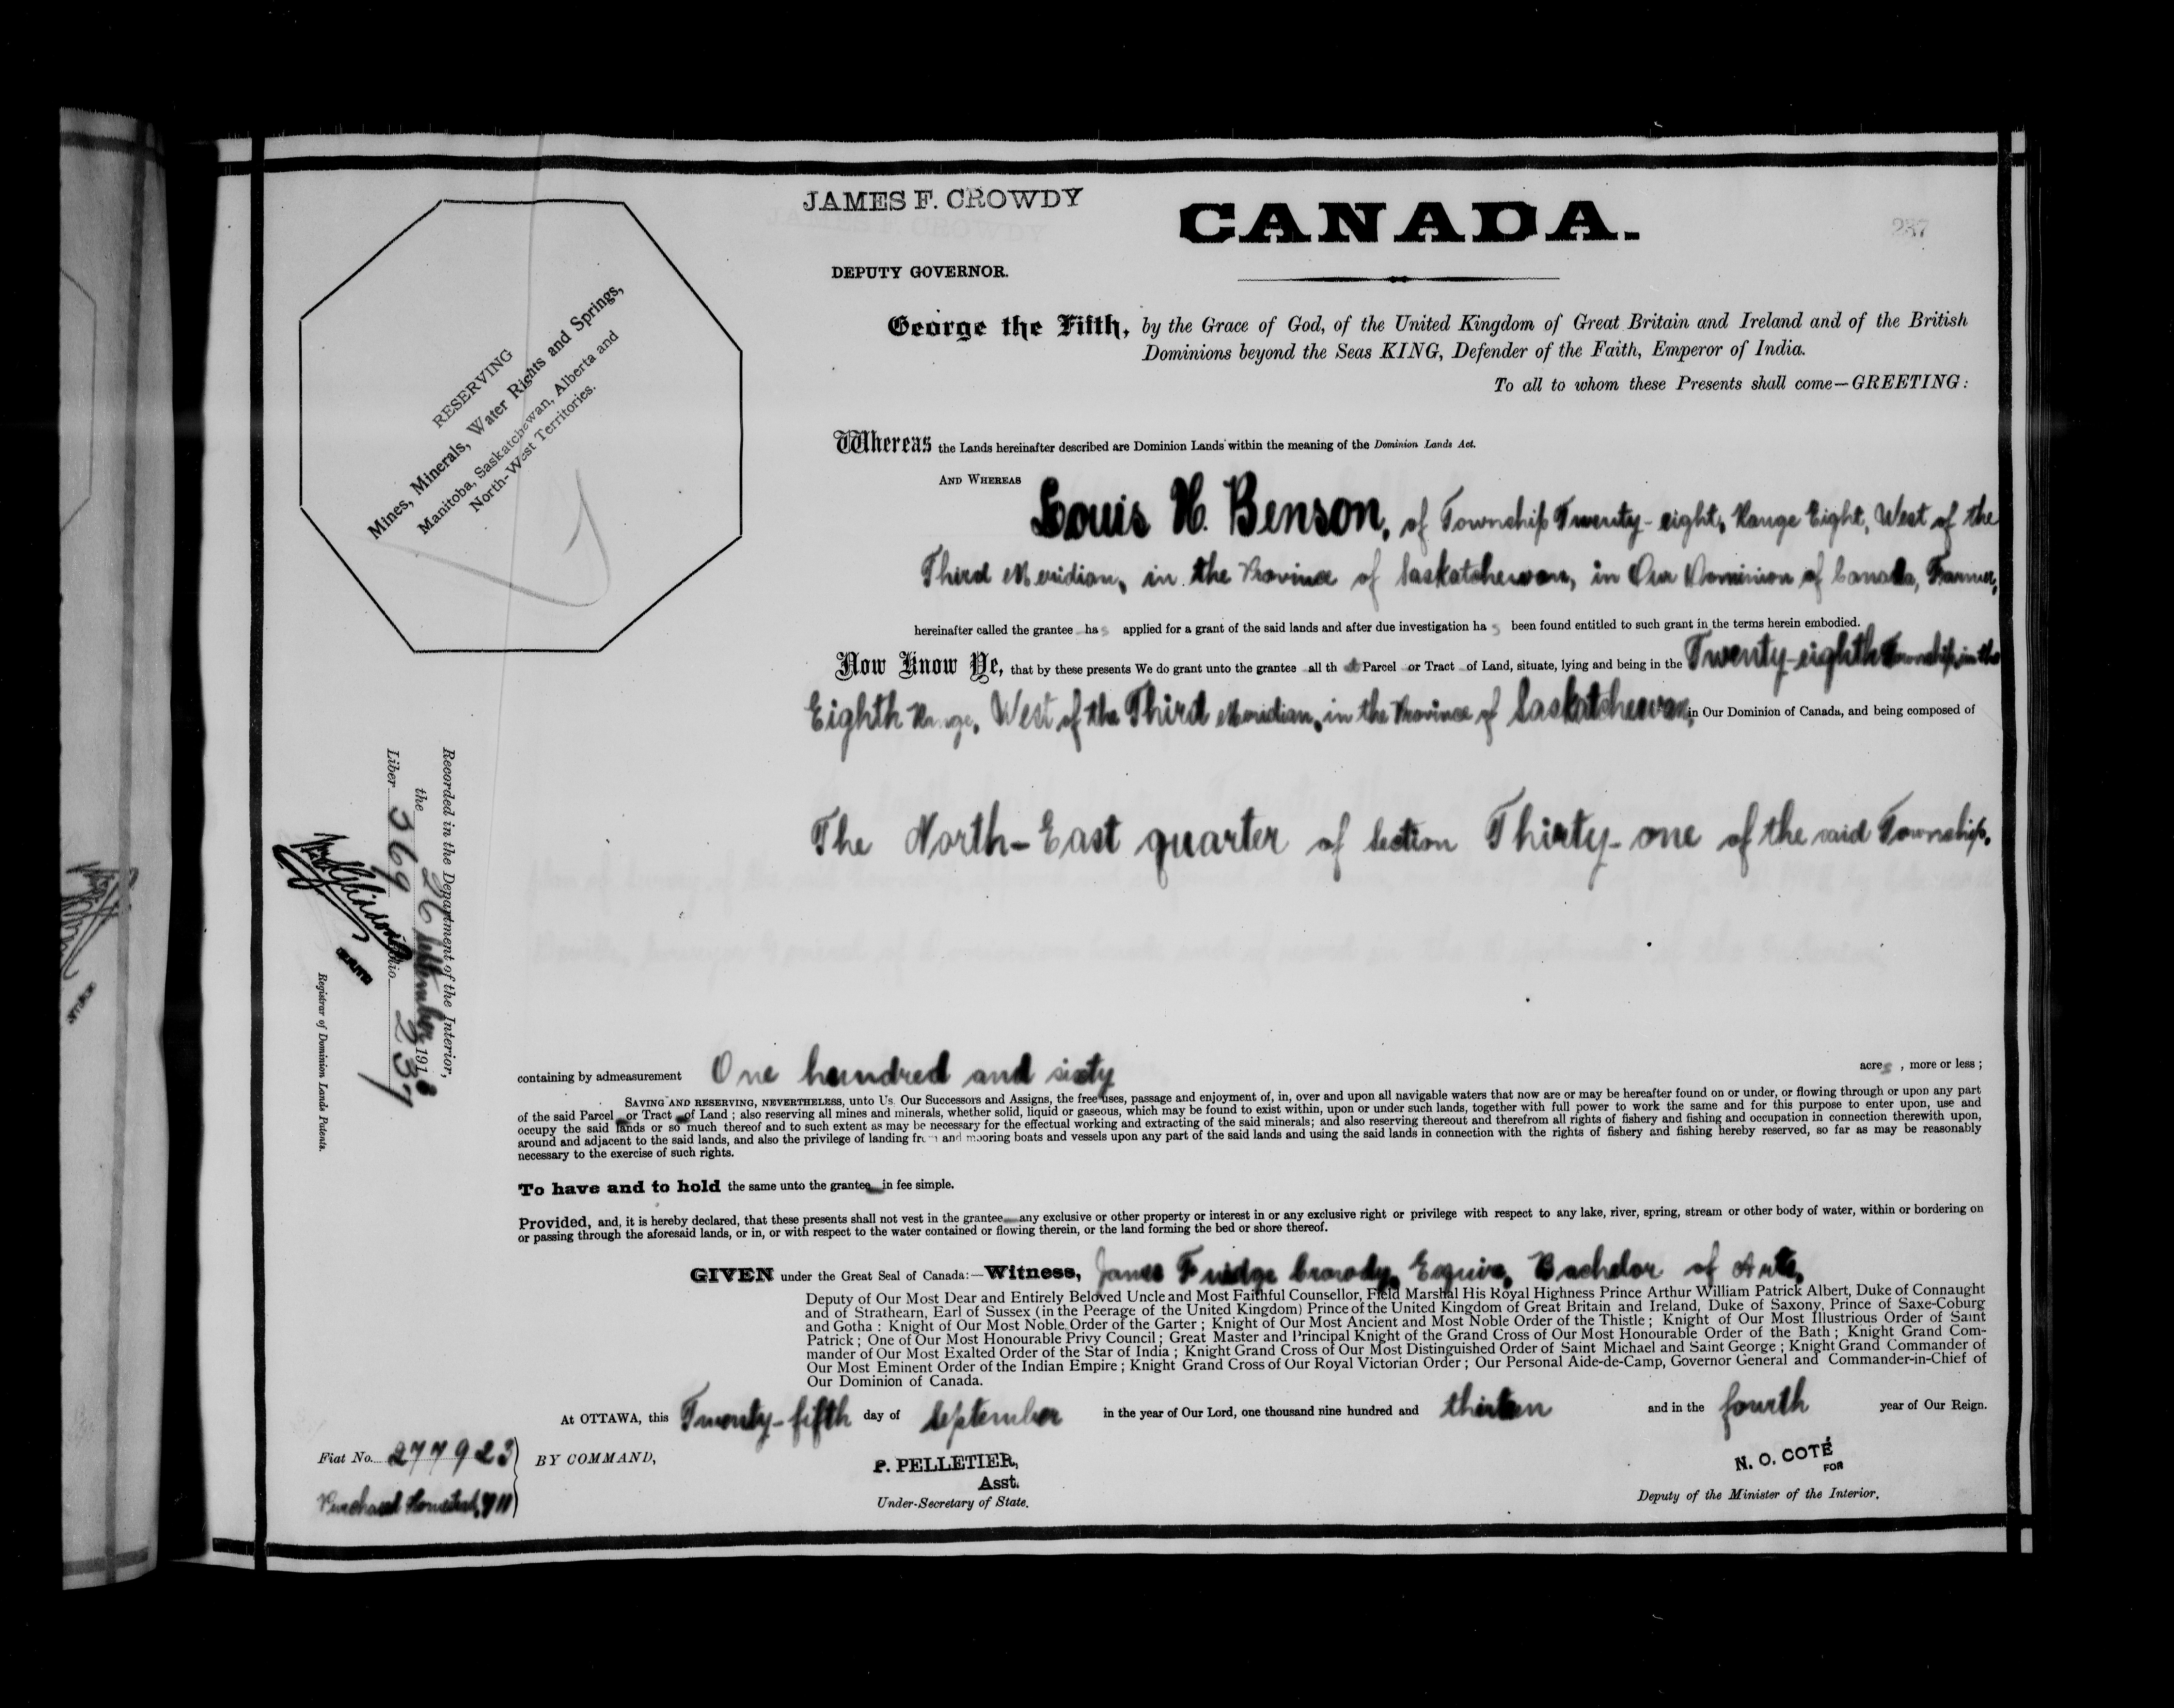 JAMES F. CROWDY
CANADA.
237
DEPUTY GOVERNOR.
George the Fifth, by the Grace of God, of the United Kingdom of Great Britain and Ireland and of the British
Dominions beyond the Seas KING, Defender of the Faith, Emperor of India.
To all to whom these Presents shall come—GREETING:
RESERVING
Mines, Minerals, Water Rights and Springs,
Manitoba, Saskatchewan, Alberta and
North-West Territories.
Whereas the Lands hereinafter described are Dominion Lands within the meaning of the Dominion Lands Act.
AND WHEREAS
Louis H. Benson, of Township Twenty-eight, Range Eight, West of the
Third Meridian, in the Province of Saskatchewan, in Our Dominion of Canada, Farmer,
hereinafter called the grantee has applied for a grant of the said lands and after due investigation has been found entitled to such grant in the terms herein embodied.
Now Know Ye, that by these presents We do grant unto the grantee all that Parcel or Tract of Land, situate, lying and being in the Twenty-eighth Township, in the
Eighth Range, West of the Third Meridian, in the Province of Saskatchewan, in Our Dominion of Canada, and being composed of
The North-East quarter of Section Thirty-one of the said Township.
Recorded in the Department of the Interior,
the 26 September 1913
Liber 369 Folio 237
Registrar of Dominion Lands Patents.
containing by admeasurement One hundred and sixty acres, more or less;
SAVING AND RESERVING, NEVERTHELESS, unto Us. Our Successors and Assigns, the free uses, passage and enjoyment of, in, over and upon all navigable waters that now are or may be hereafter found on or under, or flowing through or upon any part
of the said Parcel or Tract of Land; also reserving all mines and minerals, whether solid, liquid or gaseous, which may be found to exist within, upon or under such lands, together with full power to work the same and for this purpose to enter upon, use and
occupy the said lands or so much thereof and to such extent as may be necessary for the effectual working and extracting of the said minerals; and also reserving thereout and therefrom all rights of fishery and fishing and occupation in connection therewith upon,
around and adjacent to the said lands, and also the privilege of landing from and mooring boats and vessels upon any part of the said lands and using the said lands in connection with the rights of fishery and fishing hereby reserved, so far as may be reasonably
necessary to the exercise of such rights.
To have and to hold the same unto the grantee in fee simple.
Provided, and, it is hereby declared, that these presents shall not vest in the grantee any exclusive or other property or interest in or any exclusive right or privilege with respect to any lake, river, spring, stream or other body of water, within or bordering on
or passing through the aforesaid lands, or in, or with respect to the water contained or flowing therein, or the land forming the bed or shore thereof.
GIVEN under the Great Seal of Canada:—Witness, James Fuidge Crowdy, Esquire, Bachelor of Arts,
Deputy of Our Most Dear and Entirely Beloved Uncle and Most Faithful Counsellor, Field Marshal His Royal Highness Prince Arthur William Patrick Albert, Duke of Connaught
and of Strathearn, Earl of Sussex (in the Peerage of the United Kingdom) Prince of the United Kingdom of Great Britain and Ireland, Duke of Saxony, Prince of Saxe-Coburg
and Gotha: Knight of Our Most Noble Order of the Garter; Knight of Our Most Ancient and Most Noble Order of the Thistle; Knight of Our Most Illustrious Order of Saint
Patrick; One of Our Most Honourable Privy Council; Great Master and Principal Knight of the Grand Cross of Our Most Honourable Order of the Bath; Knight Grand Com-
mander of Our Most Exalted Order of the Star of India; Knight Grand Cross of Our Most Distinguished Order of Saint Michael and Saint George; Knight Grand Commander of
Our Most Eminent Order of the Indian Empire; Knight Grand Cross of Our Royal Victorian Order; Our Personal Aide-de-Camp, Governor General and Commander-in-Chief of
Our Dominion of Canada.
At OTTAWA, this Twenty-fifth day of September in the year of Our Lord, one thousand nine hundred and thirteen and in the fourth year of Our Reign.
Fiat No. 277923
BY COMMAND,
Purchased Homestead,
P. PELLETIER,
Asst.
Under-Secretary of State.
N. O. COTÉ
FOR
Deputy of the Minister of the Interior.